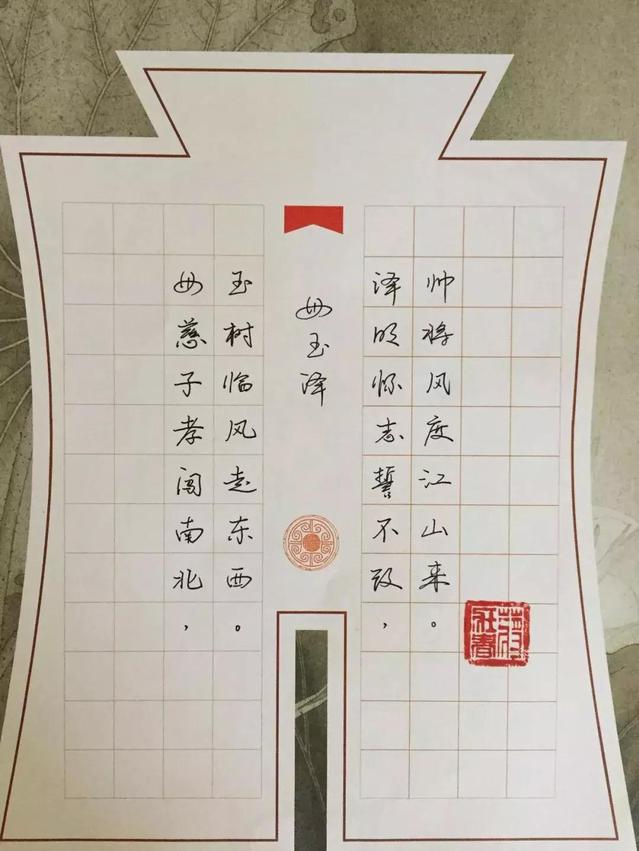 母玉泽
母慈子孝闯南北，
玉树临风走东西。
泽明怀志誓不改，
帅将风度江山来。